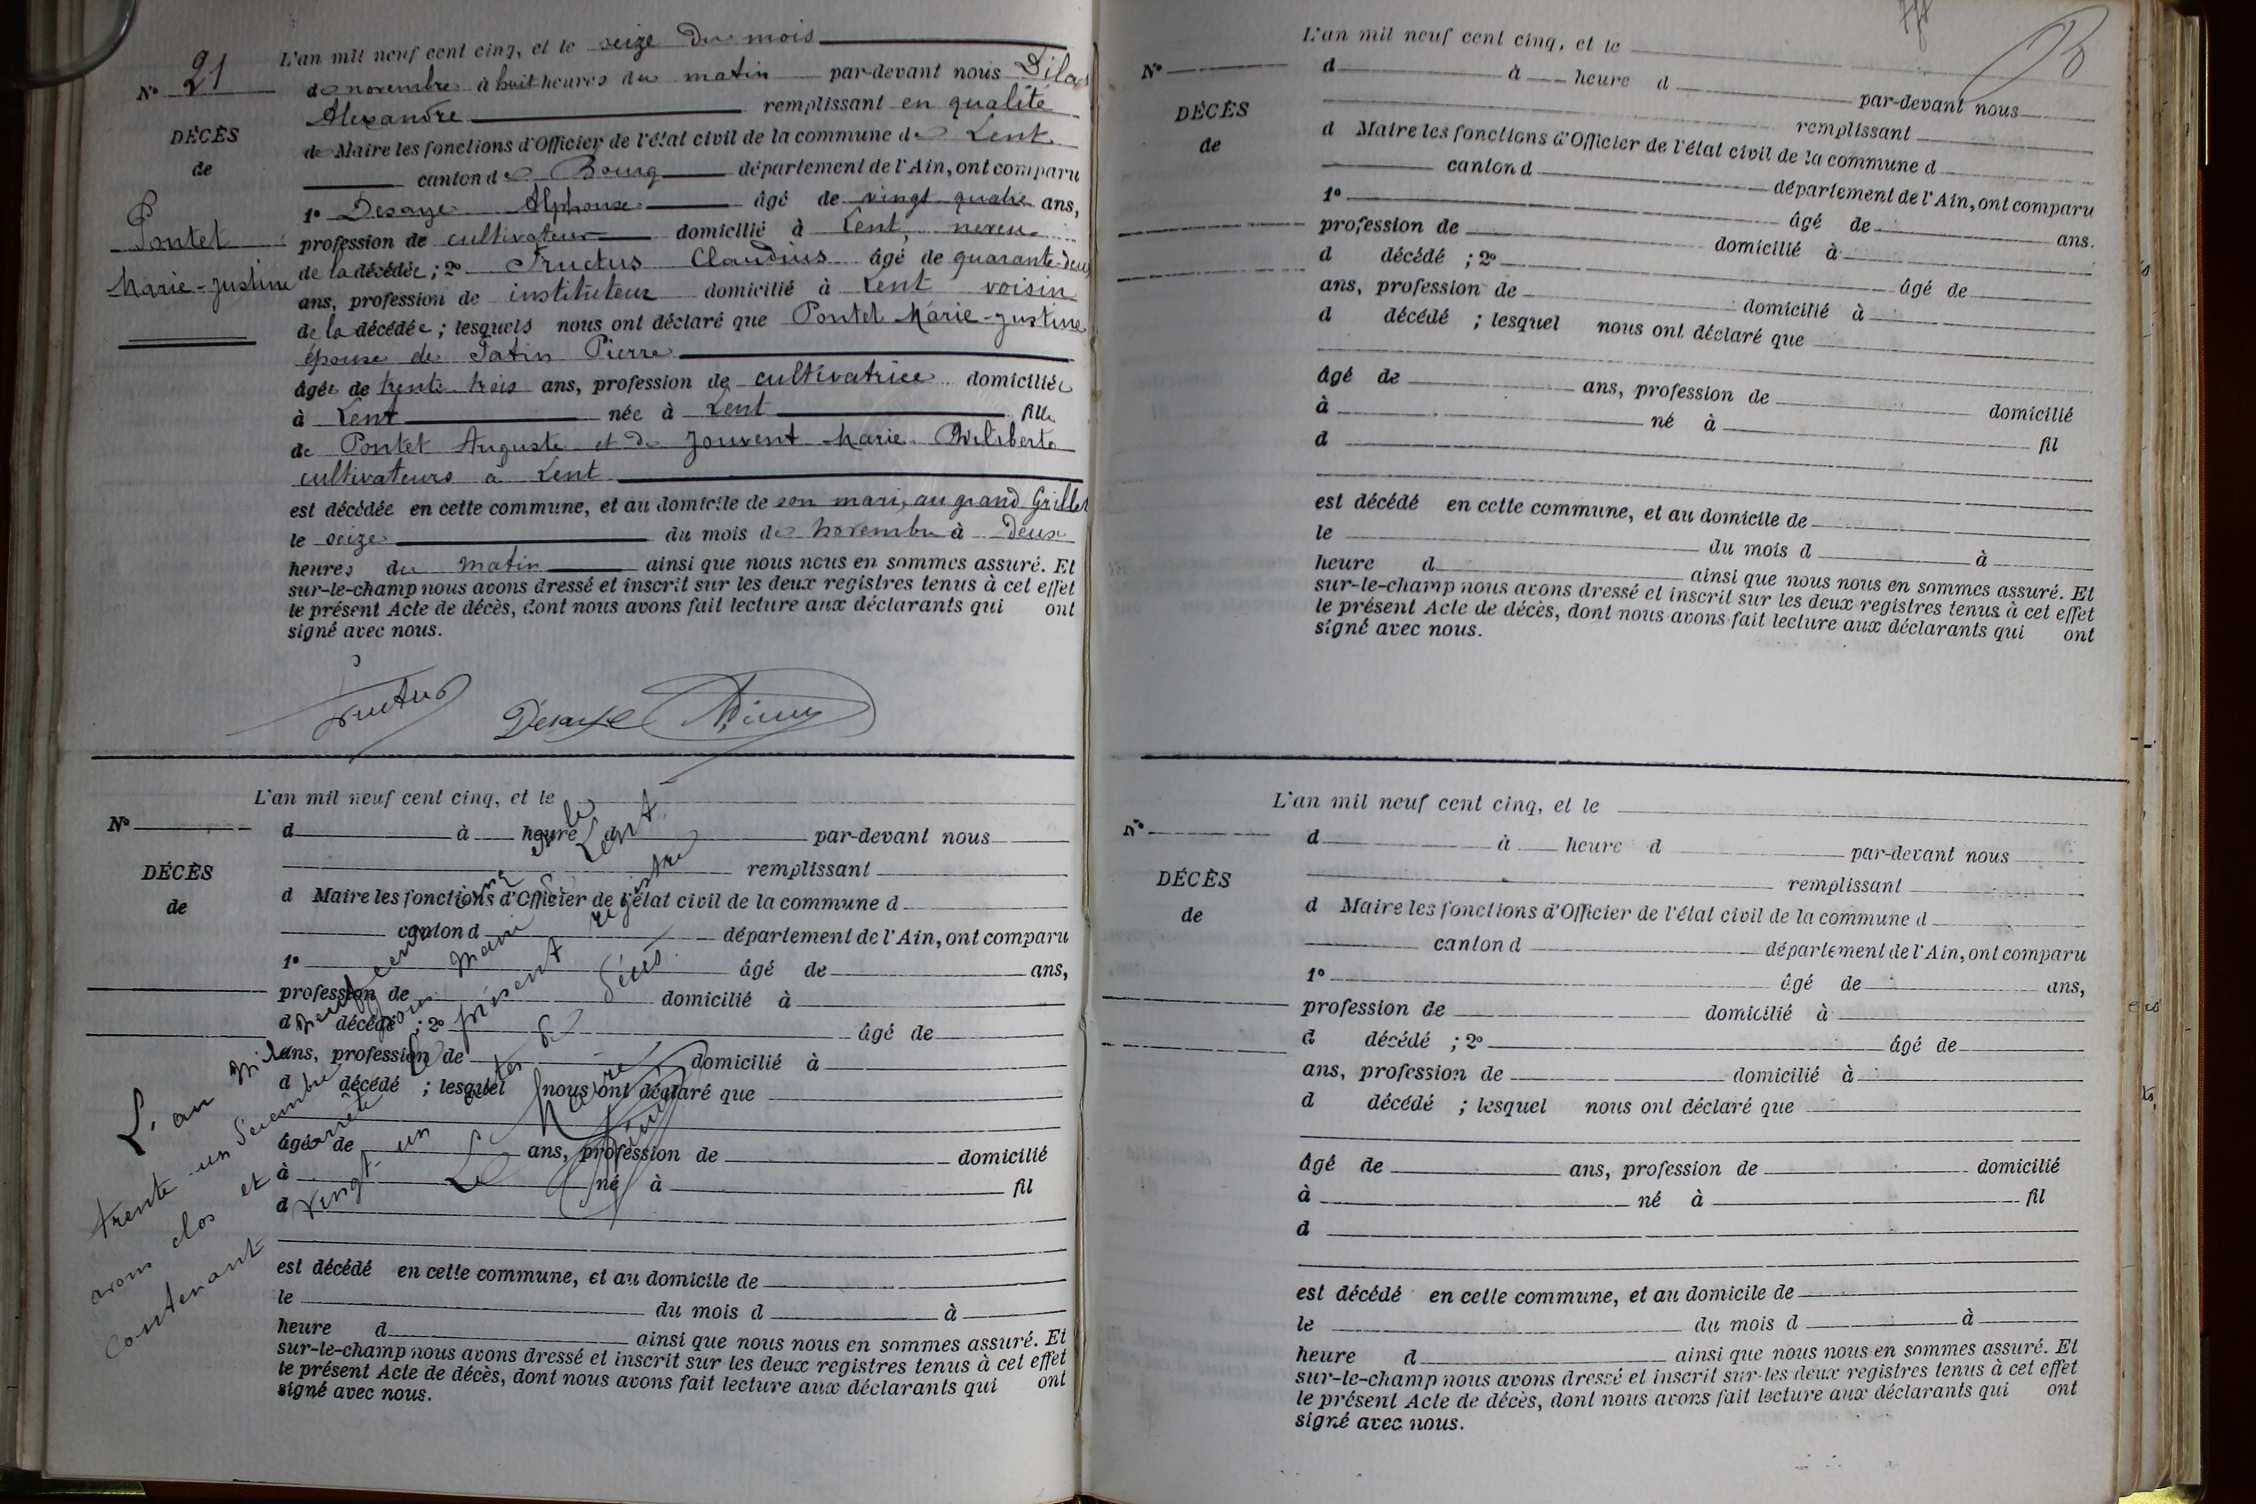 L'an mil neuf cent cinq, et le seize du mois
N° 21
de novembre à huit heures du matin par-devant nous
Alexandre remplissant en qualité
DÉCÈS
de Maire les fonctions d'Officier de l'état civil de la commune de Lent
de
canton de Bourg département de l'Ain, ont comparu
1° Desaye Alphonse âgé de vingt quatre ans,
Pontet
profession de cultivateur domicilié à Lent, neveu
Marie-Justine
de la décédée ; 2° Fructus Claudius âgé de quarante-deux
ans, profession de instituteur domicilié à Lent voisin
de la décédée ; lesquels nous ont déclaré que Pontet Marie-Justine
épouse de Patin Pierre
âgée de trente trois ans, profession de cultivatrice domiciliée
à Lent née à Lent fille
de Pontet Auguste et de Jouvent Marie Philiberte
cultivateurs à Lent
est décédée en cette commune, et au domicile de son mari, au grand Grillet
le seize du mois de novembre à deux
heures du matin ainsi que nous nous en sommes assuré. Et
sur-le-champ nous avons dressé et inscrit sur les deux registres tenus à cet effet
le présent Acte de décès, dont nous avons fait lecture aux déclarants qui ont
signé avec nous.
Fructus
Desaye
L'an mil neuf cent cinq, et le
N°
d à heure d par-devant nous
remplissant
DÉCÈS
d Maire les fonctions d'Officier de l'état civil de la commune d
de
canton d département de l'Ain, ont comparu
1° âgé de ans,
profession de domicilié à
d décédé ; 2° âgé de
ans, profession de domicilié à
d décédé ; lesquel nous ont déclaré que
âgé de ans, profession de domicilié
à né à fil
d
est décédé en cette commune, et au domicile de
le du mois d à
heure d ainsi que nous nous en sommes assuré. Et
sur-le-champ nous avons dressé et inscrit sur les deux registres tenus à cet effet
le présent Acte de décès, dont nous avons fait lecture aux déclarants qui ont
signé avec nous.
L'an mil neuf cent cinq et le
trente-un décembre nous maire de Lent
avons clos et arrêté le présent registre
contenant vingt-un actes de décès.
Le Maire
L'an mil neuf cent cinq, et le
N°
d à heure d par-devant nous
remplissant
DÉCÈS
d Maire les fonctions d'Officier de l'état civil de la commune d
de
canton d département de l'Ain, ont comparu
1° âgé de ans.
profession de domicilié à
d décédé ; 2° âgé de
ans, profession de domicilié à
d décédé ; lesquel nous ont déclaré que
âgé de ans, profession de domicilié
à né à fil
d
est décédé en cette commune, et au domicile de
le du mois d à
heure d ainsi que nous nous en sommes assuré. Et
sur-le-champ nous avons dressé et inscrit sur les deux registres tenus à cet effet
le présent Acte de décès, dont nous avons fait lecture aux déclarants qui ont
signé avec nous.
L'an mil neuf cent cinq, et le
N°
d à heure d par-devant nous
remplissant
DÉCÈS
d Maire les fonctions d'Officier de l'état civil de la commune d
de
canton d département de l'Ain, ont comparu
1° âgé de ans,
profession de domicilié à
d décédé ; 2° âgé de
ans, profession de domicilié à
d décédé ; lesquel nous ont déclaré que
âgé de ans, profession de domicilié
à né à fil
d
est décédé en cette commune, et au domicile de
le du mois d à
heure d ainsi que nous nous en sommes assuré. Et
sur-le-champ nous avons dressé et inscrit sur les deux registres tenus à cet effet
le présent Acte de décès, dont nous avons fait lecture aux déclarants qui ont
signé avec nous.